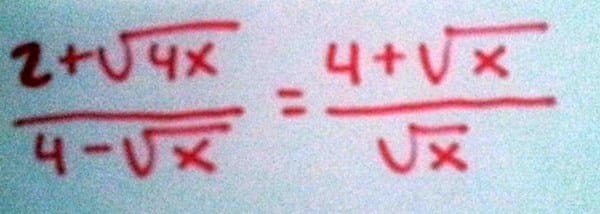 2+√4x / 4-√x = 4+√x / √x